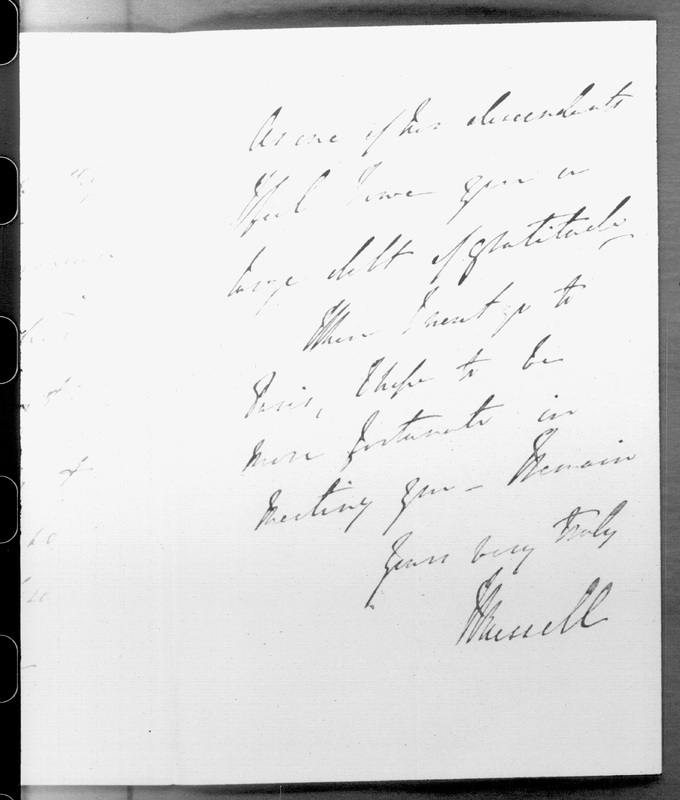 As one of his descendants
I feel I owe you a
large debt of gratitude
When I next go to
Paris, I hope to be
more fortunate in
meeting you - I remain
Yours very truly
J Russell